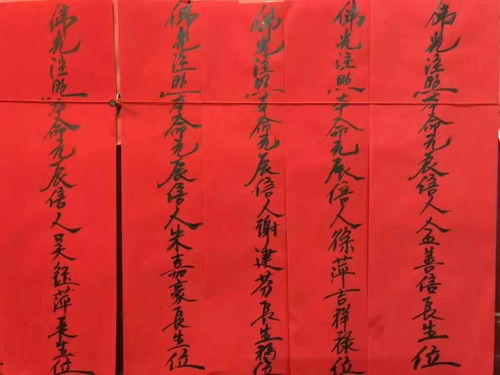 佛光注照本命元辰信人善信長生位
佛光注照本命元辰信人徐萍吉祥祿位
佛光注照本命元辰信人謝建芳長生福位
佛光注照本命元辰信人朱嘉豪長生位
佛光注照本命元辰信人吳鈺萍長生位